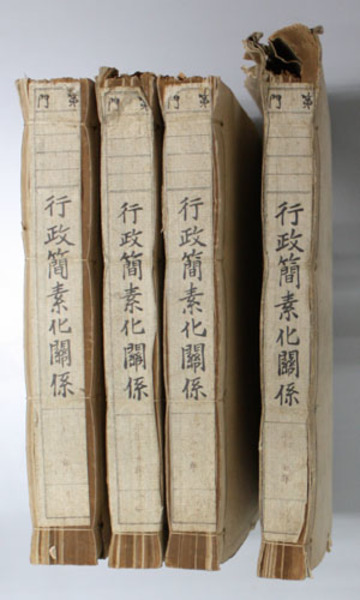 第 門
行政簡素化關係
第 門
行政簡素化關係
第 門
行政簡素化關係
第 門
行政簡素化關係